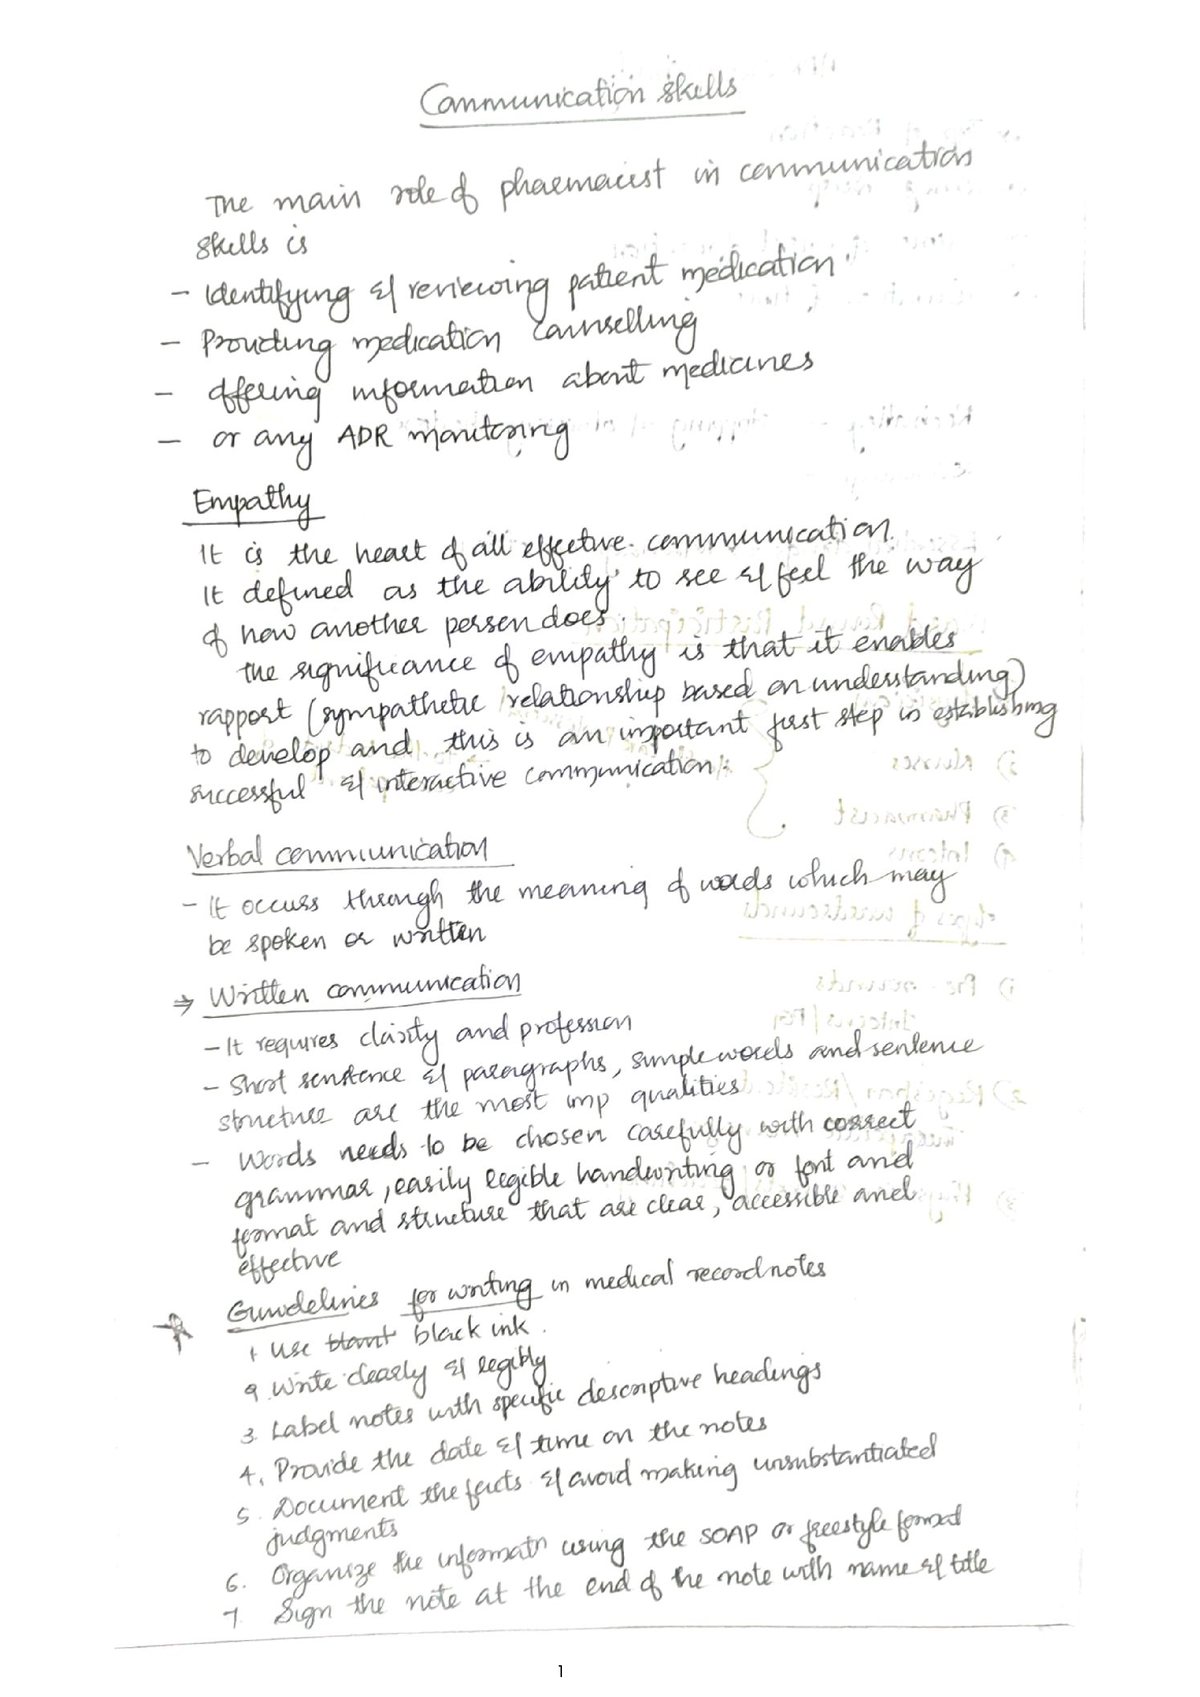 Communication skills
The main role of pharmacist in communication
skills is
- Identifying & reviewing patient medication
- Providing medication counselling
- offering information about medicines
- or any ADR monitoring
Empathy
It is the heart of all effective communication.
It defined as the ability to see & feel the way
of how another person does.
the significance of empathy is that it enables
rapport (sympathetic relationship based on understanding)
to develop and this is an important first step in establishing
successful & interactive communication.
Verbal communication
- It occurs through the meaning of words which may
be spoken or written
⇒ Written communication
- It requires clarity and profession
- Short sentence & paragraphs, simple words and sentence
structure are the most imp qualities
- Words needs to be chosen carefully with correct
grammar, easily legible handwriting or font and
format and structure that are clear, accessible and
effective
Guidelines for writing in medical record notes
1 Use black ink.
2. Write clearly & legibly
3. Label notes with specific descriptive headings
4. Provide the date & time on the notes
5. Document the facts & avoid making unsubstantiated
judgments
6. Organize the informatn using the SOAP or freestyle format
7. Sign the note at the end of the note with name & title
1